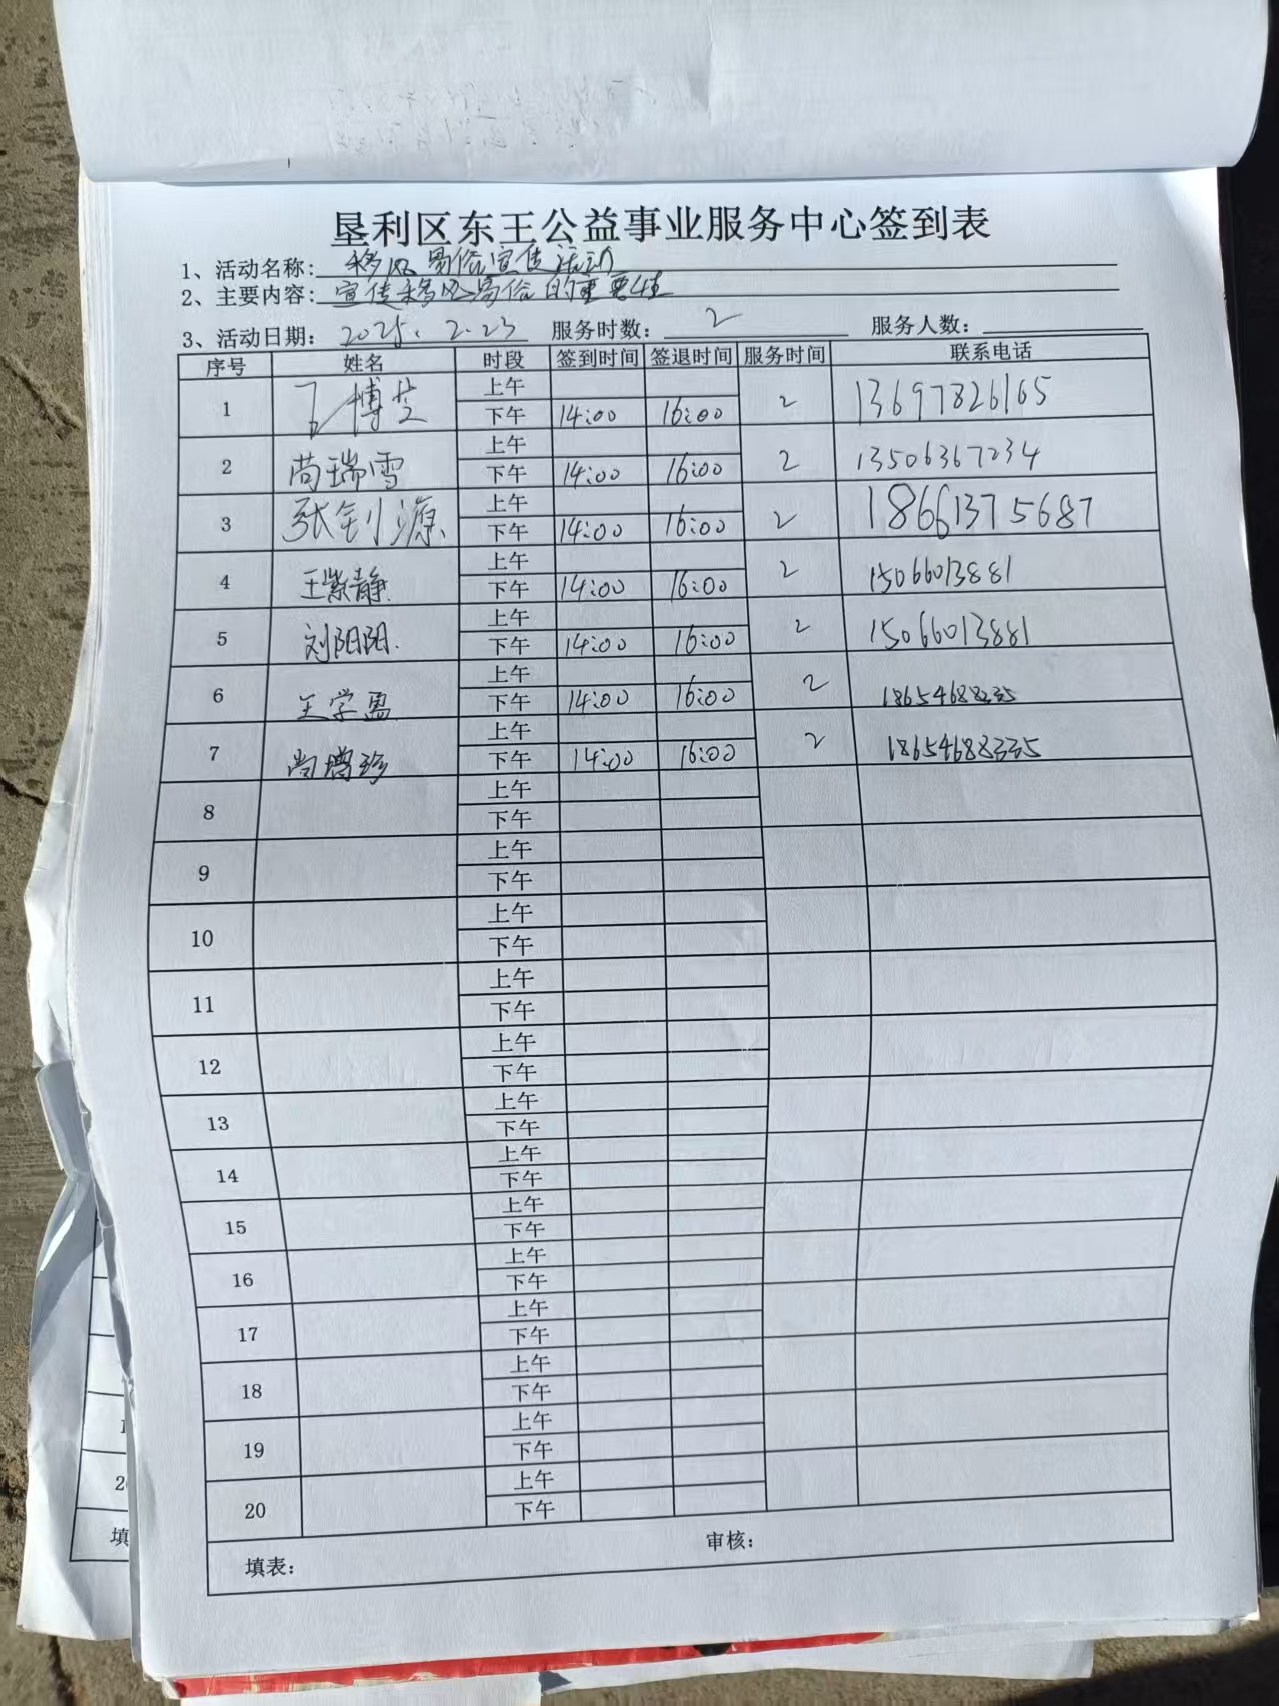 垦利区东王公益事业服务中心签到表
1、活动名称: 移风易俗宣传活动
2、主要内容: 宣传移风易俗的重要性
3、活动日期: 2025.2.23 服务时数: 2 服务人数:
序号 姓名 时段 签到时间 签退时间 服务时间 联系电话
1 博芝 上午
下午 14:00 16:00 2 13697826165
2 尚瑞雪 上午
下午 14:00 16:00 2 13506367234
3 张钊源 上午
下午 14:00 16:00 2 18661375687
4 王紫静 上午
下午 14:00 16:00 2 15066013881
5 刘阳阳 上午
下午 14:00 16:00 2 15066013881
6 王学盈 上午
下午 14:00 16:00 2 18654688335
7 尚增珍 上午
下午 14:00 16:00 2 18654688335
8 上午
下午
9 上午
下午
10 上午
下午
11 上午
下午
12 上午
下午
13 上午
下午
14 上午
下午
15 上午
下午
16 上午
下午
17 上午
下午
18 上午
下午
19 上午
下午
20 上午
下午
填表: 审核:
填